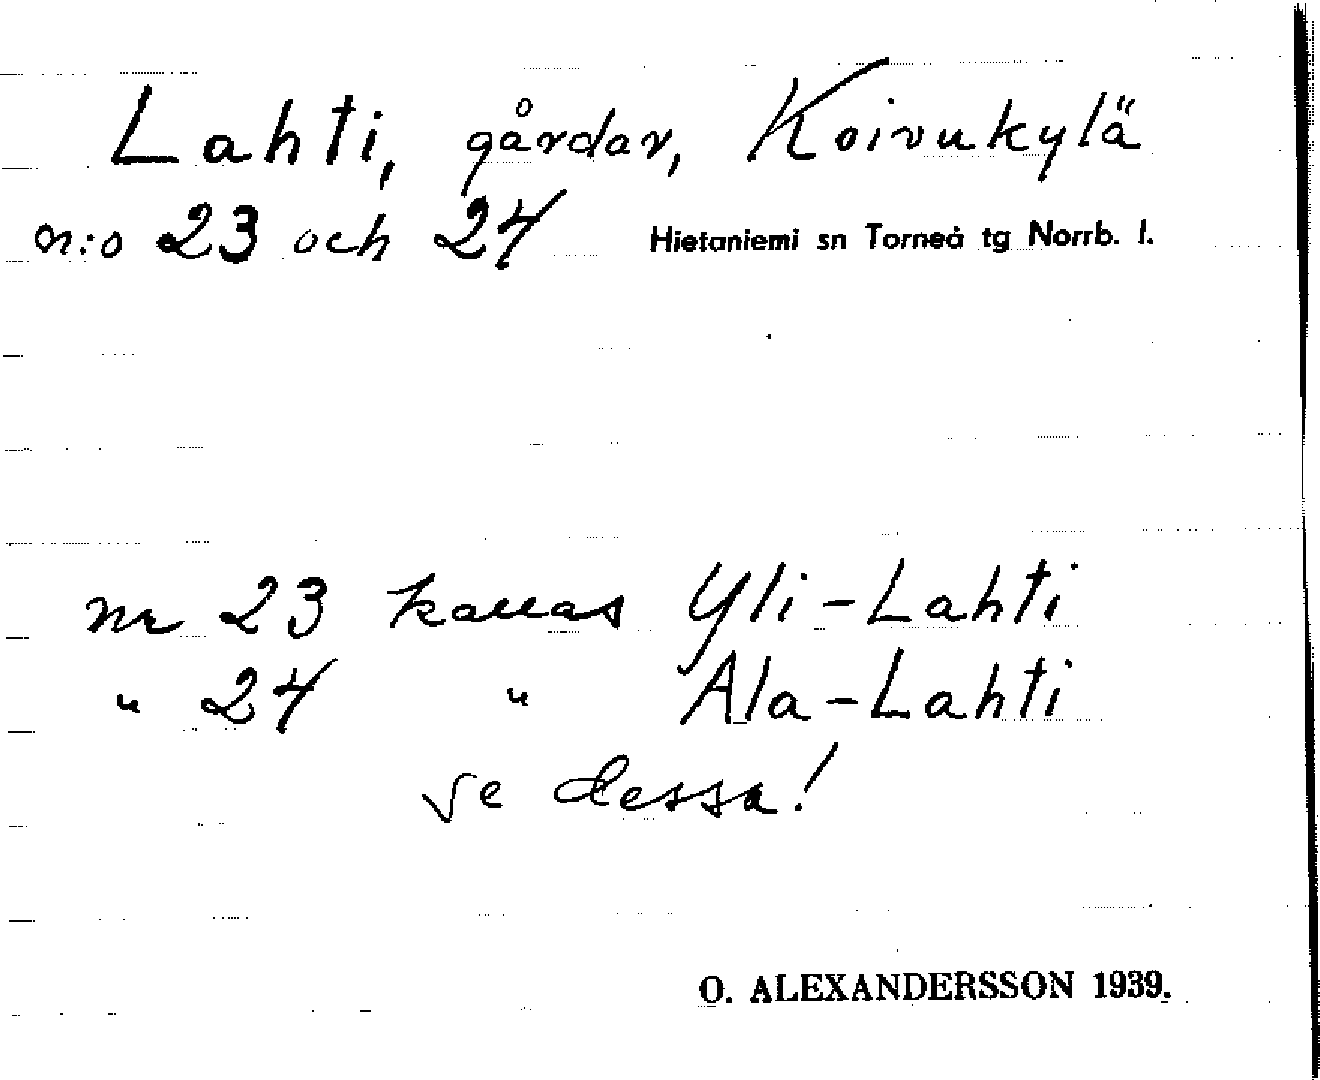 Lahti, gårdar, Koivukylä
n:o 23 och 24 Hietaniemi sn Torneå tg Norrb. l.
nr 23 kallas Yli-Lahti
" 24 " Ala-Lahti
se dessa!
O. ALEXANDERSSON 1939.